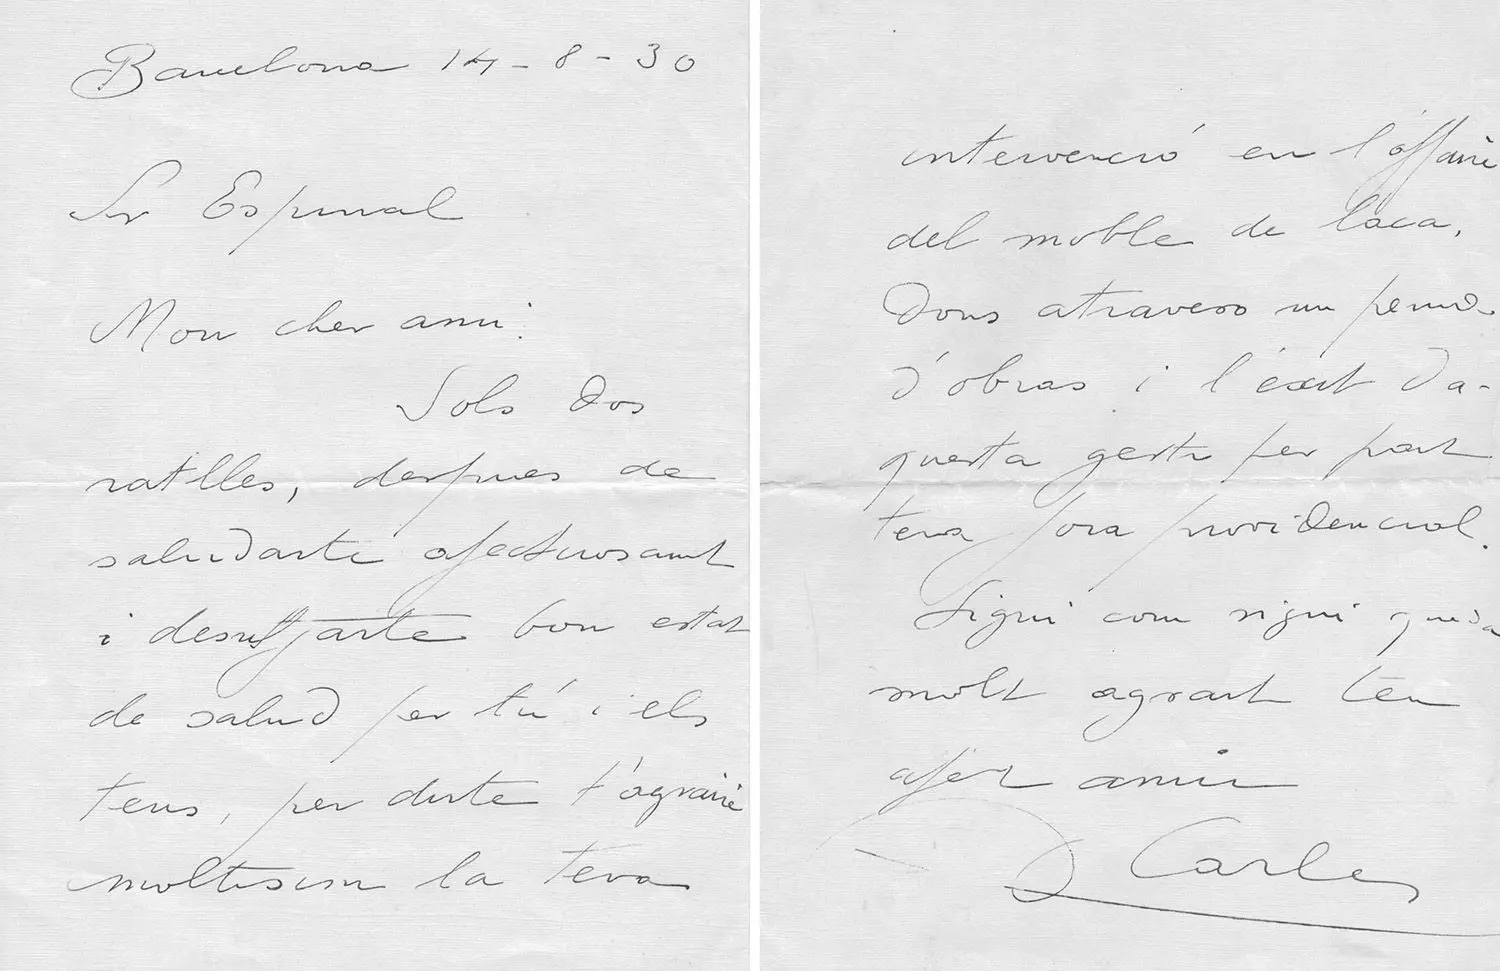 Barcelona 14-8-30
Sr Espinal
Mon cher ami:
Sols dos
ratlles, despues de
saludarte afectuosament
i desitjarte bon estat
de salud per tú i els
teus, per dirte t'agrairé
moltisim la teva
intervenció en l'affaire
del moble de laca,
Dons atravero un periode
d'obras i l'éxit da-
questa gestió per part
teva fora providencial.
Sigui com sigui queda
molt agrait teu
afet amic
D Carles